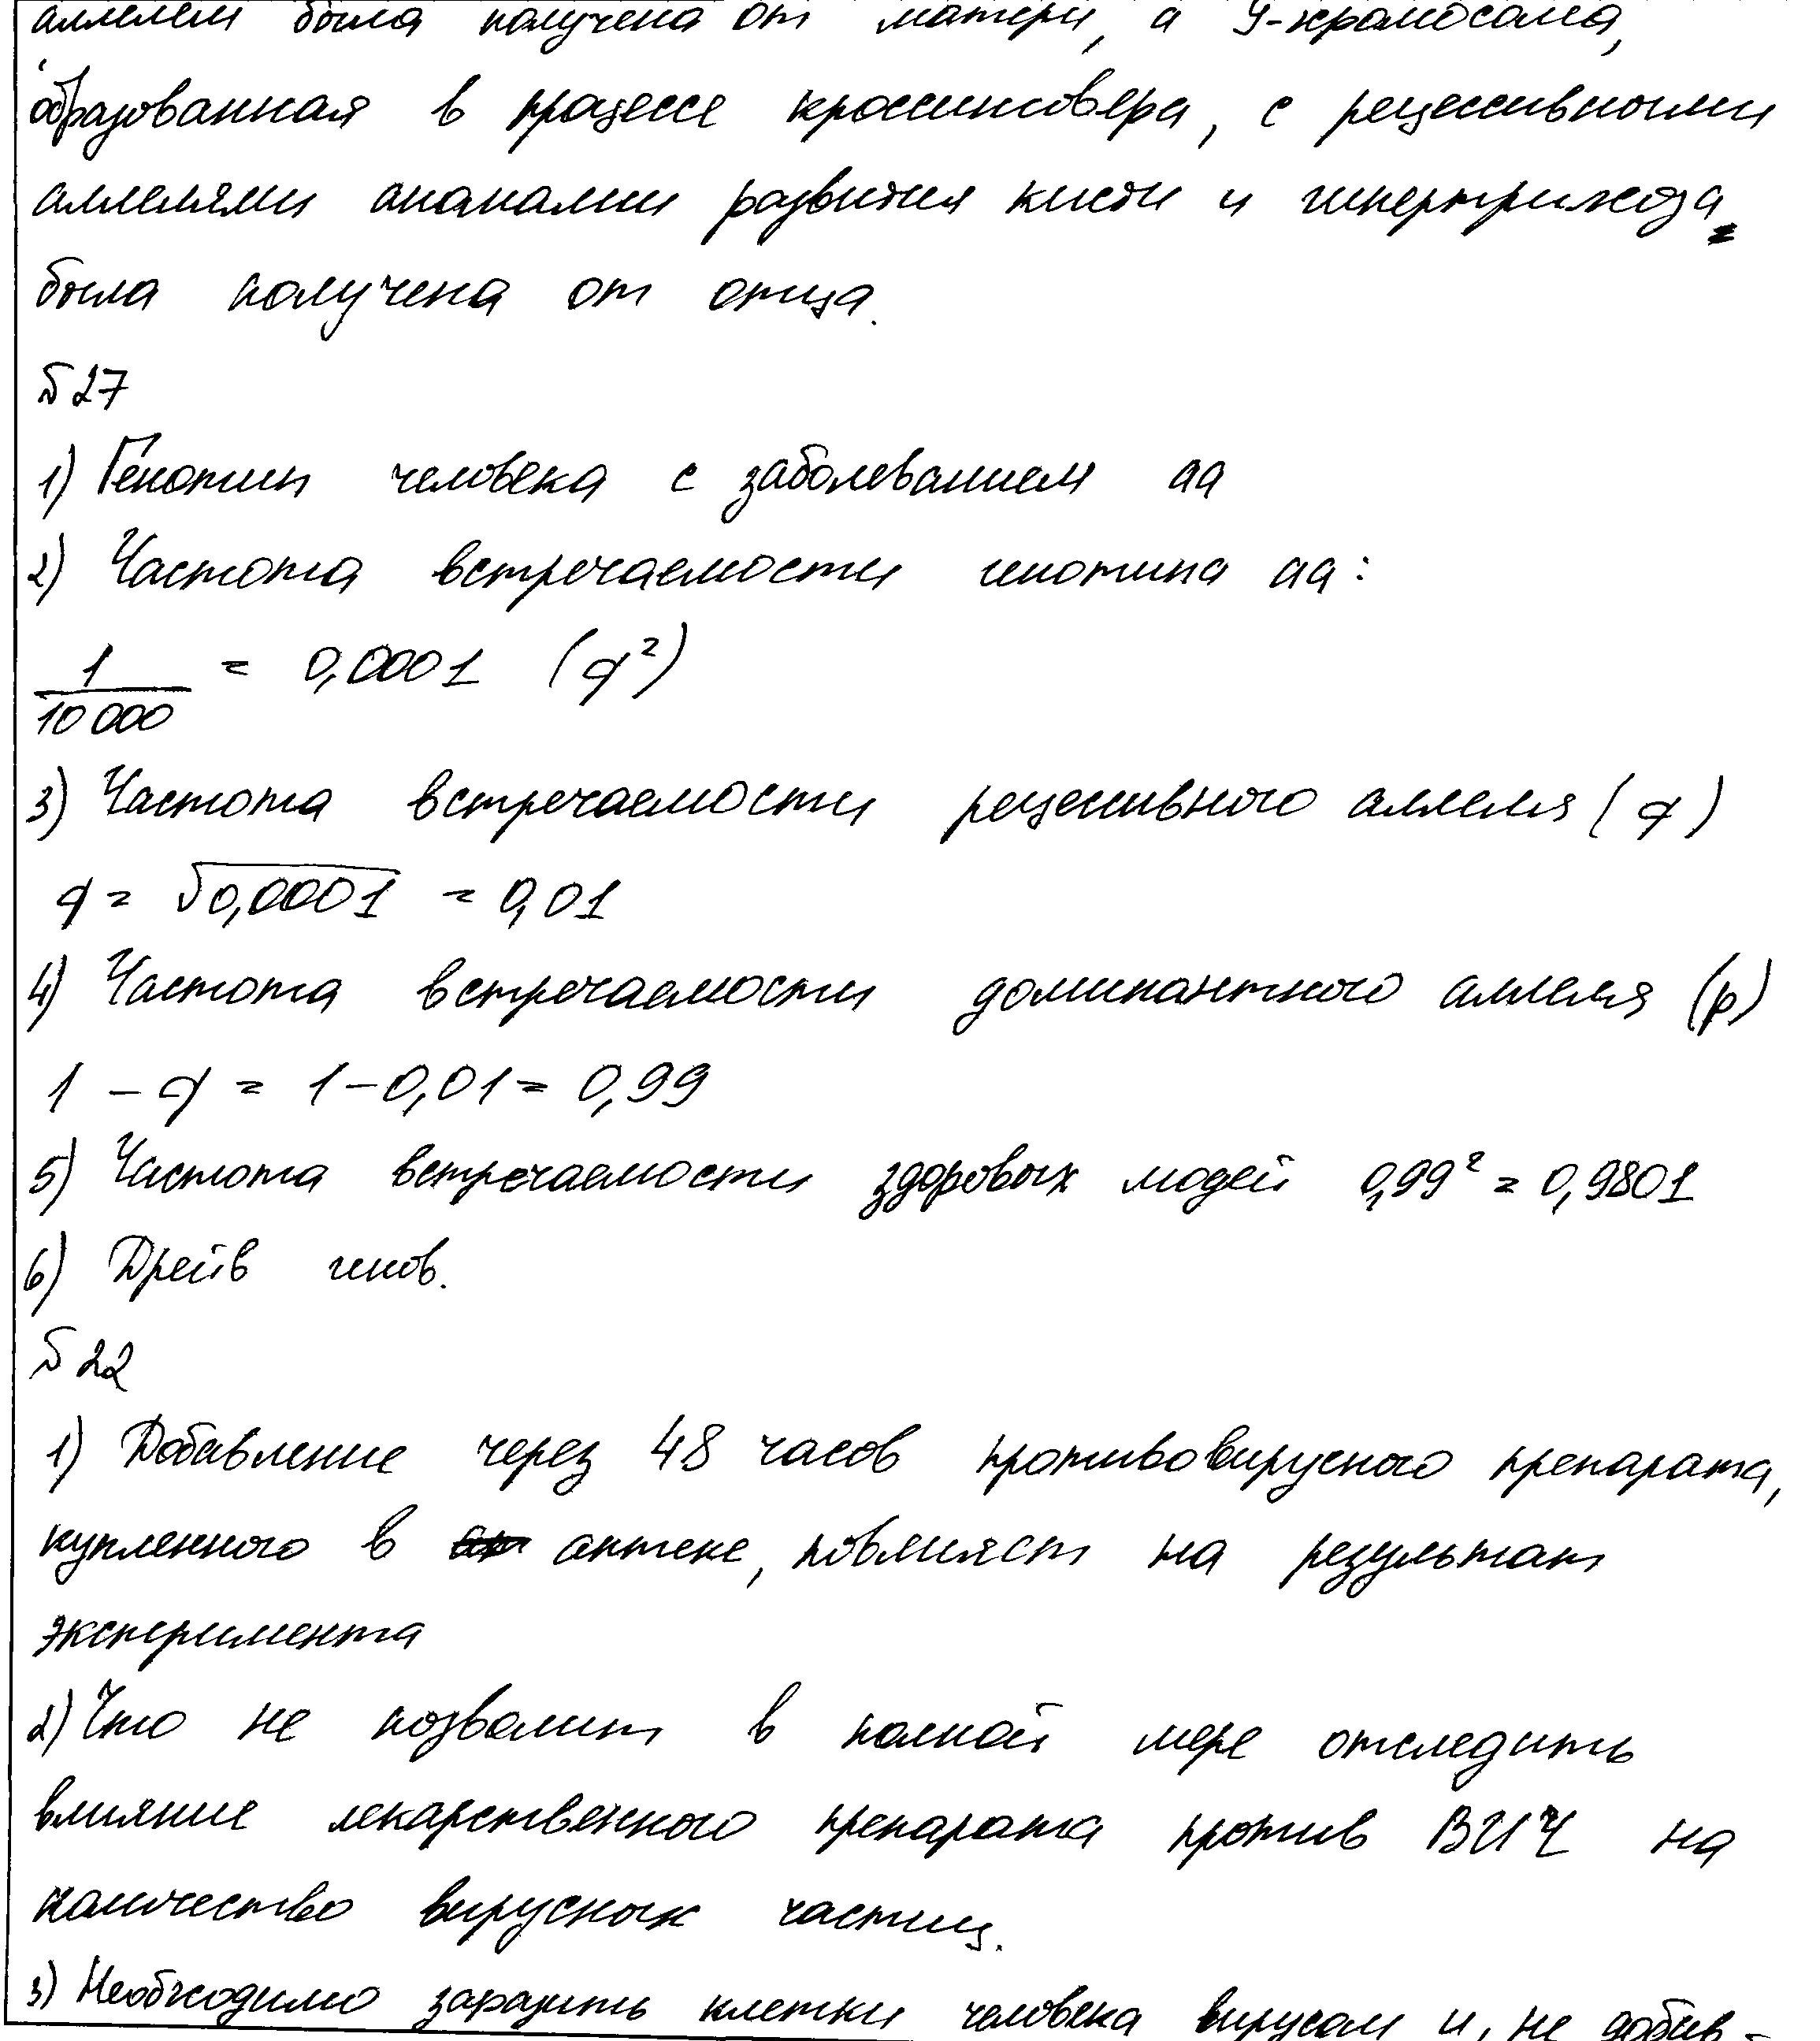 аллелем была получена от матери, а Y-хромосома,
образованная в процессе кроссинговера, с рецессивными
аллелями аномалии развития кисти и гипертрихоза
была получена от отца.
№ 27
1) Генотип человека с заболеванием aa
2) Частота встречаемости генотипа aa:
1/10 000 = 0,0001 (q²)
3) Частота встречаемости рецессивного аллеля (q)
q = √0,0001 = 0,01
4) Частота встречаемости доминантного аллеля (p)
1 – q = 1 – 0,01 = 0,99
5) Частота встречаемости здоровых людей 0,99² = 0,9801
6) Дрейв генов.
№ 22
1) Добавление через 48 часов противовирусного препарата,
купленного в аптеке, повлияет на результат
эксперимента
2) Что не позволит в полной мере отследить
влияние лекарственного препарата против ВИЧ на
количество вирусных частиц.
3) Необходимо заразить клетки человека вирусом и, не добав-